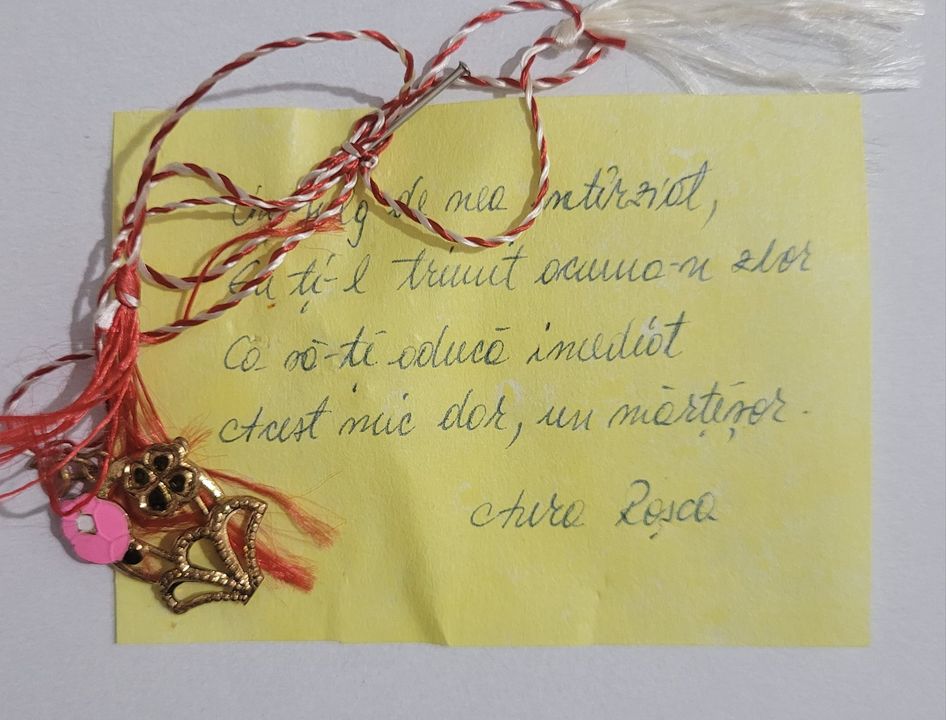 Un fulg de nea întîrziat,
Eu ți-l trimit acuma-n zbor
Ca să-ți aducă imediat
Acest mic dar, un mărțișor.
Aura Roșca